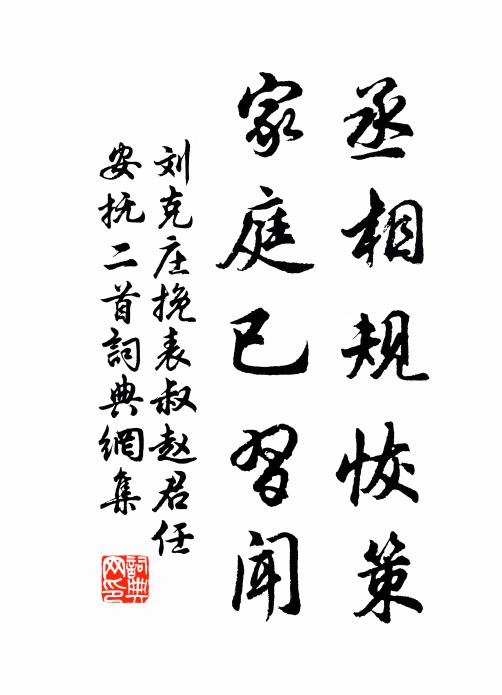 丞相规恢策
家庭已習闻
刘克庄挽表叔赵君任
安抚二首詞典網集
詞典
网印